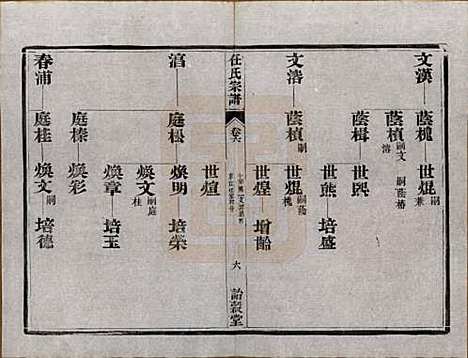 文漢 蔭槐 世焜嗣兼
蔭楨嗣文溶 嗣蔭椿
蔭楫 世熙
世熊 培盛
文溶 蔭楨嗣 世焜嗣蔭槐
世煌 增齡
世煊
任氏宗譜 卷六 六
涫 庭松 煥明 培榮
煥文嗣庭桂
煥章 培玉
庭榛 煥彩
春浦 庭桂 煥文嗣 培德